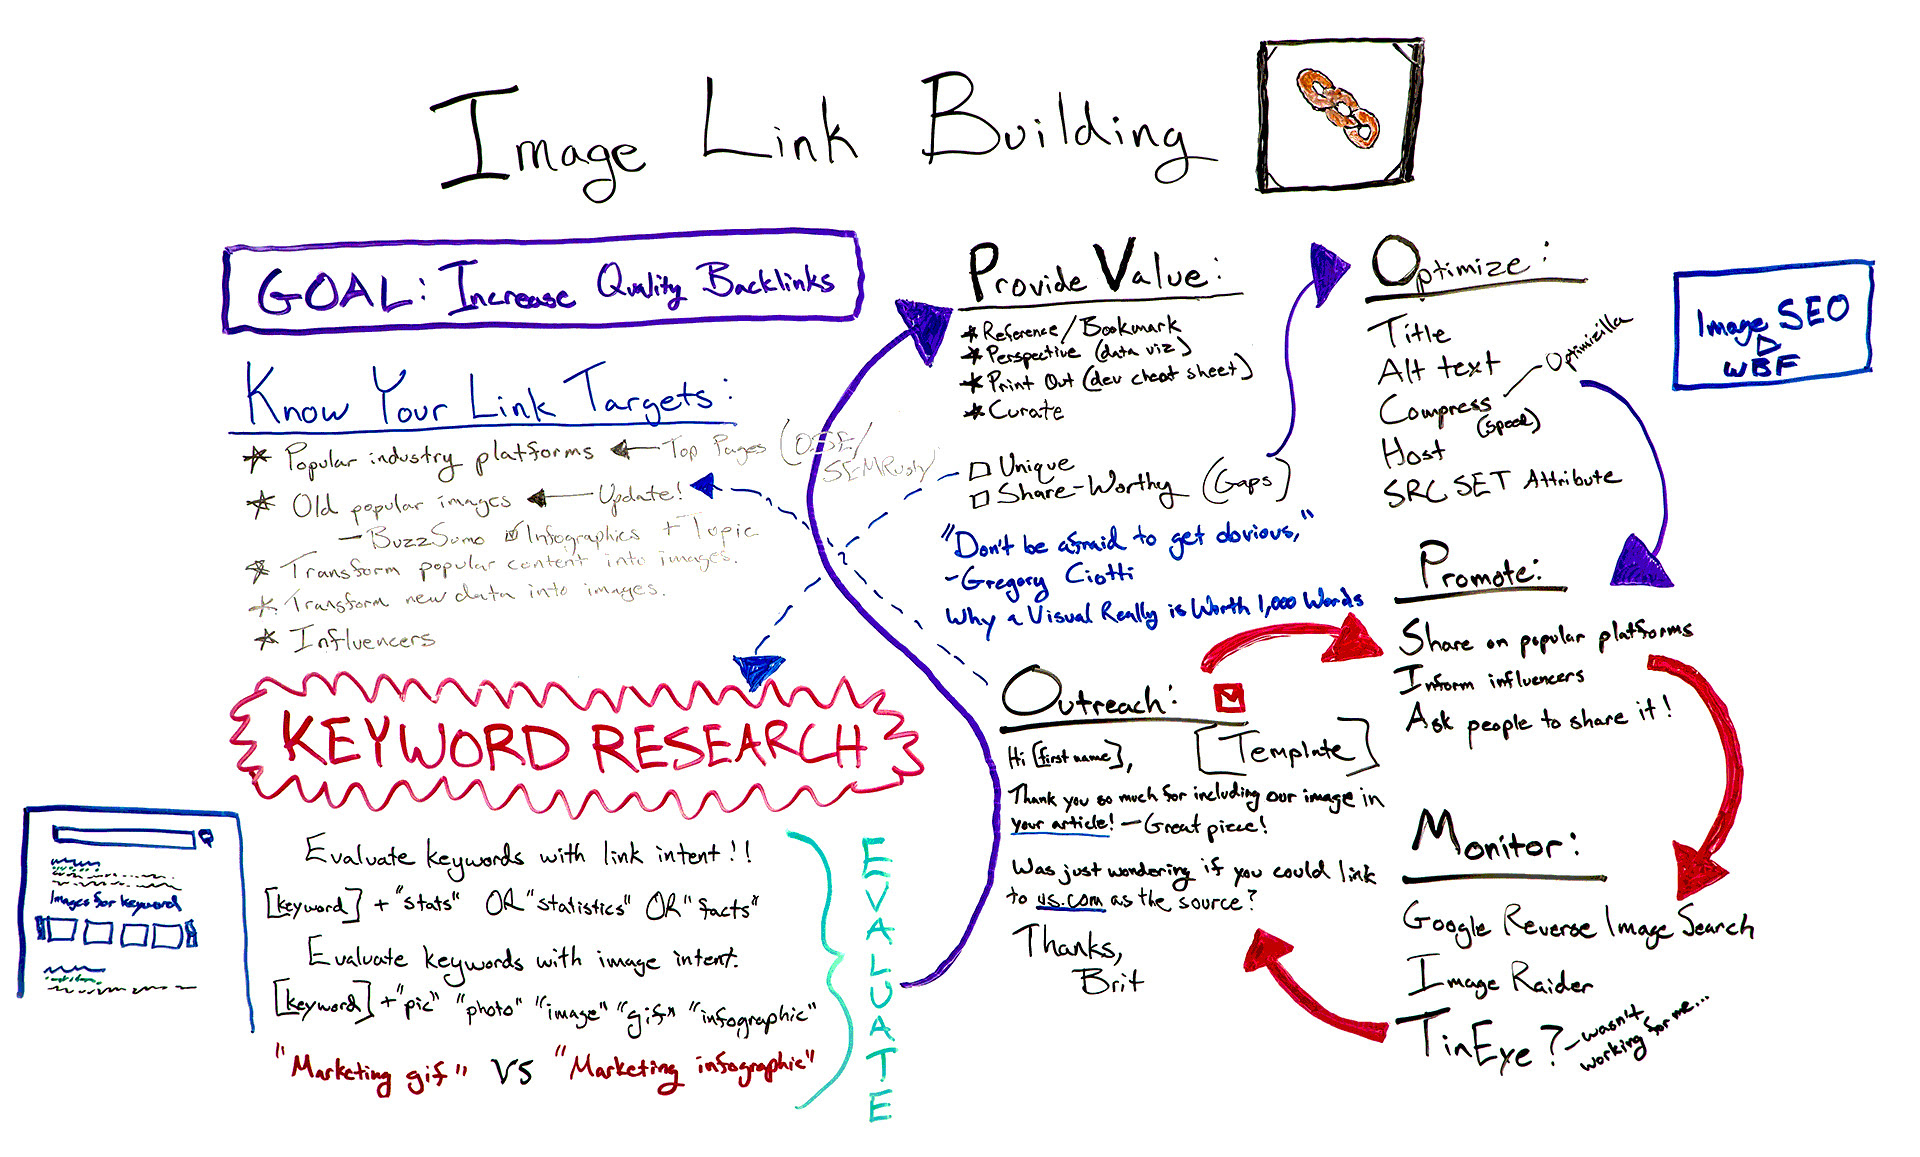 Image Link Building
GOAL: Increase Quality Backlinks
Know Your Link Targets:
* Popular industry platforms ← Top Pages (OSE/
SEMRush)
* Old popular images ← Update!
- BuzzSumo ☑ Infographics + Topic
* Transform popular content into images.
* Transform new data into images.
* Influencers
KEYWORD RESEARCH
Images for keyword
Evaluate keywords with link intent!!
[keyword] + "stats" OR "statistics" OR "facts"
Evaluate keywords with image intent.
[keyword] + "pic" "photo" "image" "gif" "infographic"
"Marketing gif" VS "Marketing infographic"
EVALUATE
Provide Value:
* Reference/Bookmark
* Perspective (data viz)
* Print Out (dev cheat sheet)
* Curate
□ Unique
□ Share-Worthy (Gaps)
"Don't be afraid to get obvious,"
- Gregory Ciotti
Why a Visual Really is Worth 1,000 Words
Optimize:
Title
Alt text
Compress - Optimizilla
(speed)
Host
SRC SET Attribute
Image SEO
WBF
Promote:
Share on popular platforms
Inform influencers
Ask people to share it!
Outreach: ☑
[Template]
Hi [first name],
Thank you so much for including our image in
your article! - Great piece!
Was just wondering if you could link
to us.com as the source?
Thanks,
Brit
Monitor:
Google Reverse Image Search
Image Raider
TinEye? - wasn't
working for me...